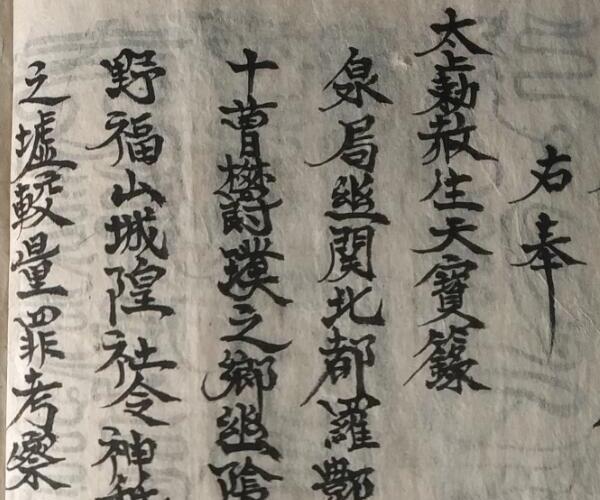 右奉
太上勅赦生天寶籙
泉局幽関北都羅酆
十曹之鄉幽陰
野福山城隍社令神
之墟較量罪考察